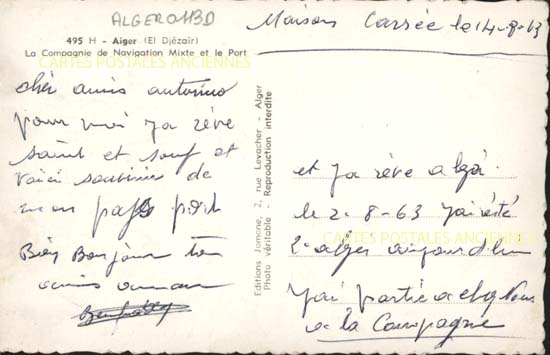 ALGER04BD
Maison Carrée le 14-8-63
495 H - Alger (El Djézaïr)
La Compagnie de Navigation Mixte et le Port
CARTES POSTALES ANCIENNES
cher amis antonino
pour moi ja rève
saint et souf et
voici souvenir de
mon pays port
Bien Bonjour ton
amis
Editions Jomone, 2, rue Levacher - Alger
Photo véritable - Reproduction interdite
et ja rève alger
le 2-8-63 j'ai été
CARTES POSTALES ANCIENNES
a alger aujourd'hui
j'ai partie a chez nous
a la Campagne